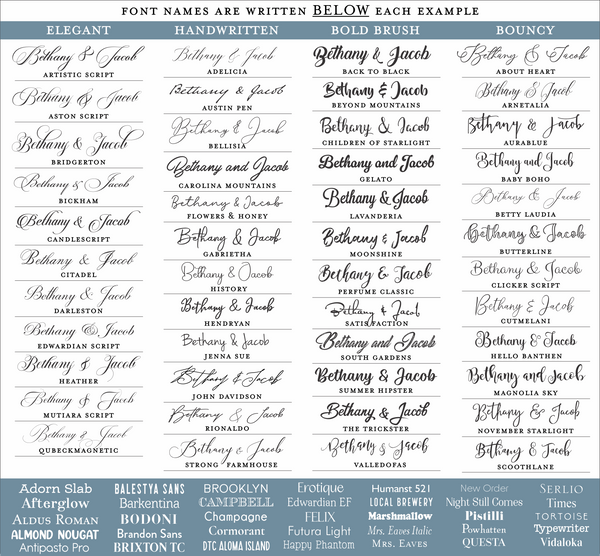 FONT NAMES ARE WRITTEN BELOW EACH EXAMPLE
ELEGANT
Bethany & Jacob
ARTISTIC SCRIPT
Bethany & Jacob
ASTON SCRIPT
Bethany & Jacob
BRIDGERTON
Bethany & Jacob
BICKHAM
Bethany & Jacob
CANDLESCRIPT
Bethany & Jacob
CITADEL
Bethany & Jacob
DARLESTON
Bethany & Jacob
EDWARDIAN SCRIPT
Bethany & Jacob
HEATHER
Bethany & Jacob
MUTIARA SCRIPT
Bethany & Jacob
QUBECKMAGNETIC
HANDWRITTEN
Bethany & Jacob
ADELICIA
Bethany & Jacob
AUSTIN PEN
Bethany & Jacob
BELLISIA
Bethany and Jacob
CAROLINA MOUNTAINS
Bethany & Jacob
FLOWERS & HONEY
Bethany & Jacob
GABRIETHA
Bethany & Jacob
HISTORY
Bethany & Jacob
HENDRYAN
Bethany & Jacob
JENNA SUE
Bethany & Jacob
JOHN DAVIDSON
Bethany & Jacob
RIONALDO
Bethany & Jacob
STRONG FARMHOUSE
BOLD BRUSH
Bethany & Jacob
BACK TO BLACK
Bethany & Jacob
BEYOND MOUNTAINS
Bethany & Jacob
CHILDREN OF STARLIGHT
Bethany and Jacob
GELATO
Bethany & Jacob
LAVANDERIA
Bethany & Jacob
MOONSHINE
Bethany & Jacob
PERFUME CLASSIC
Bethany & Jacob
SATISFACTION
Bethany and Jacob
SOUTH GARDENS
Bethany & Jacob
SUMMER HIPSTER
Bethany & Jacob
THE TRICKSTER
Bethany & Jacob
VALLEDOFAS
BOUNCY
Bethany & Jacob
ABOUT HEART
Bethany & Jacob
ARNETALIA
Bethany & Jacob
AURABLUE
Bethany and Jacob
BABY BOHO
Bethany & Jacob
BETTY LAUDIA
Bethany & Jacob
BUTTERLINE
Bethany & Jacob
CLICKER SCRIPT
Bethany & Jacob
CUTMELANI
Bethany & Jacob
HELLO BANTHEN
Bethany and Jacob
MAGNOLIA SKY
Bethany & Jacob
NOVEMBER STARLIGHT
Bethany & Jacob
SCOOTHLANE
Adorn Slab
Afterglow
ALDUS ROMAN
ALMOND NOUGAT
Antipasto Pro
BALESTYA SANS
Barkentina
BODONI
Brandon Sans
BRIXTON TC
BROOKLYN
CAMPBELL
Champagne
Cormorant
DTC ALOMA ISLAND
Erotique
Edwardian EF
FELIX
Futura Light
Happy Phantom
Humanst 521
LOCAL BREWERY
Marshmallow
Mrs. Eaves Italic
MRS. EAVES
New Order
Night Still Comes
Pistilli
Powhatten
QUESTA
SERLIO
Times
TORTOISE
Typewriter
Vidaloka